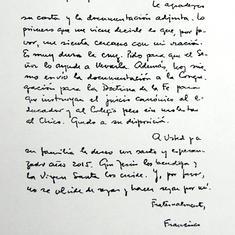 Le agradezco
su carta y la documentación adjunta. Lo
primero que me viene decirle es que, por fa-
vor, me sienta cercano con mi oración.
Es muy dura la cruz. Pido para que el Se-
ñor los ayude a llevarla. Además, hoy mis-
mo envío la documentación a la Congre-
gación para la Doctrina de la Fe para
que instruyan el juicio canónico al e-
ducador, y al Colegio pero sin molestar
al Chico. Quedo a su disposición.
A Usted y a
su familia le deseo un santo y esperan-
zado año 2015. Que Jesús los bendiga y
la Virgen Santa los cuide. Y, por favor,
no se olvide de rezar y hacer rezar por mí.
Fraternalmente,
Francisco